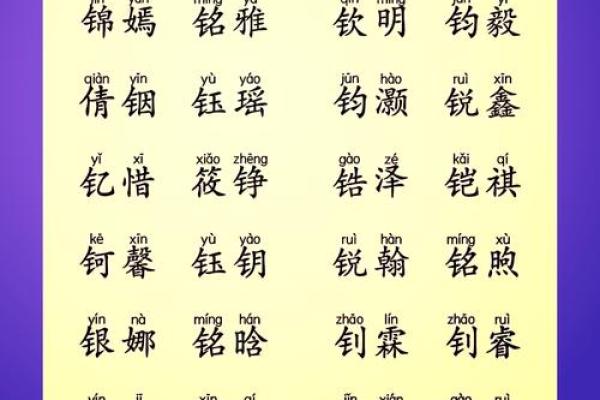 锦嫣 铭雅 钦明 钧毅
qiàn yīn yù yáo jūn hào ruì xīn
倩铟 钰瑶 钧灏 锐鑫
yǐ xī xiǎo zhēng gào zé kǎi qí
钇惜 筱铮 锆泽 铠祺
kě xīn yù yào ruì hàn míng xù
钶馨 钰钥 锐翰 铭煦
yín nà míng hán zhāo lín zhāo ruì
银娜 铭晗 钊霖 钊睿